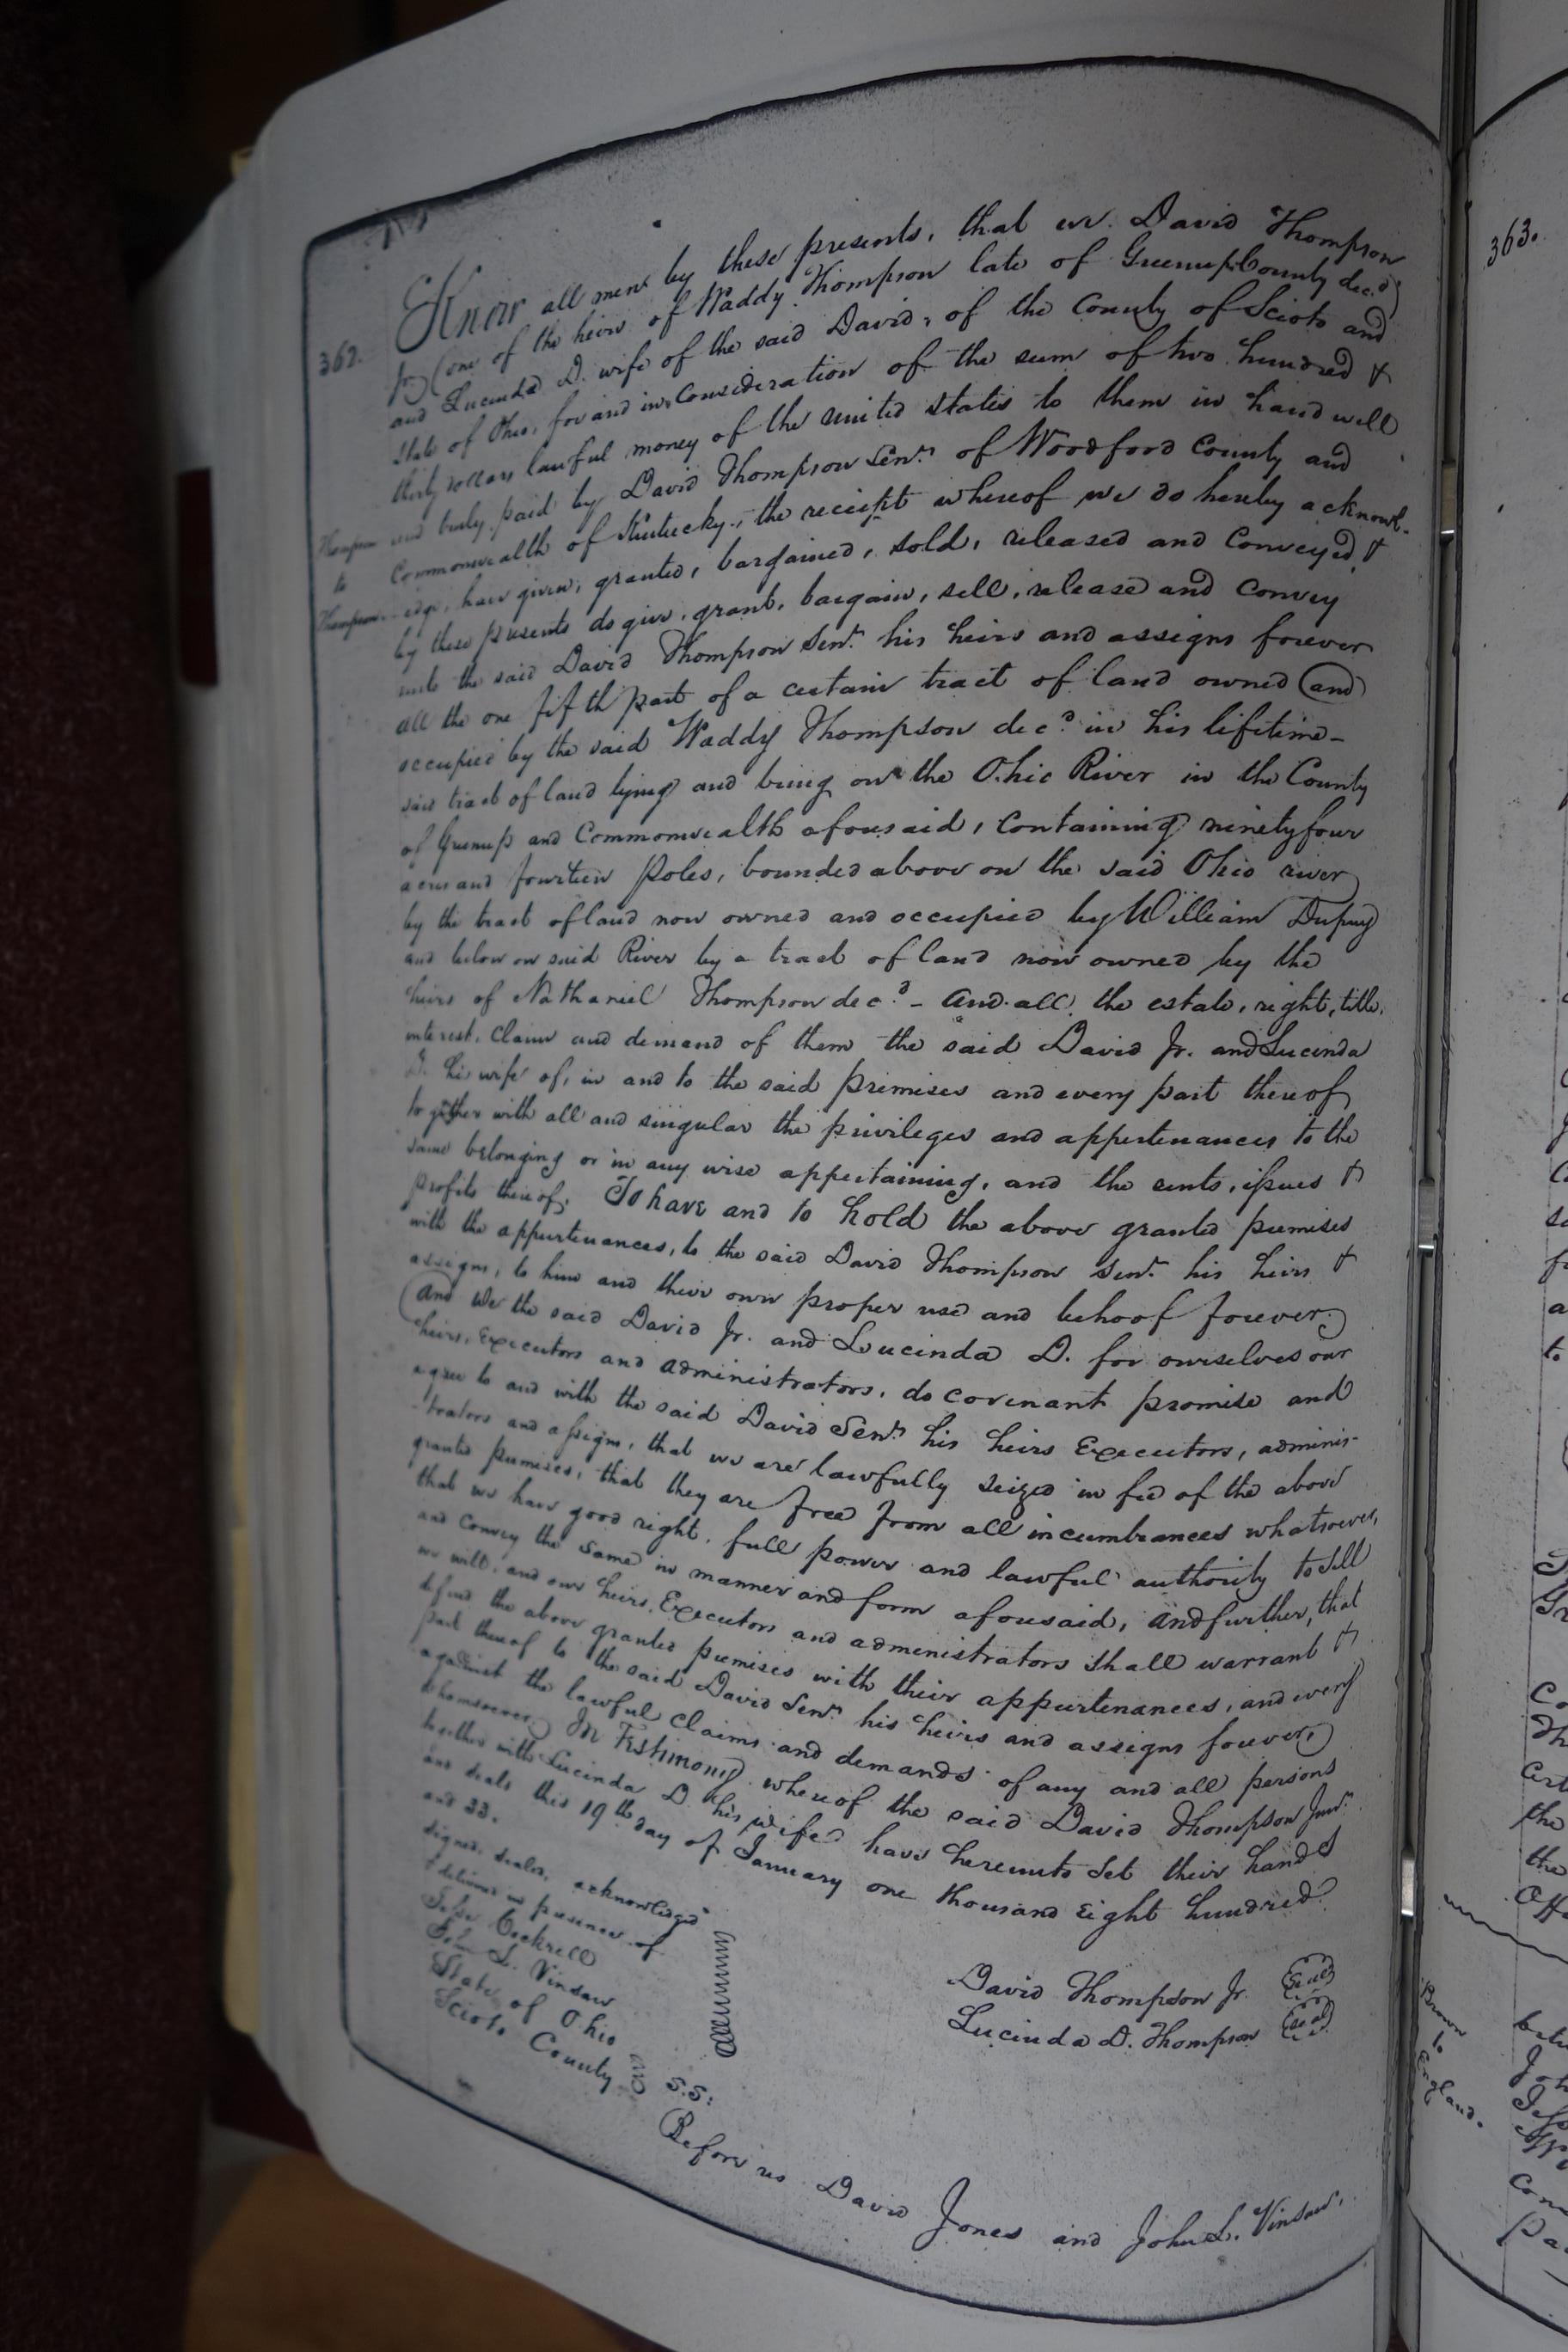 362.
Thompson
to
Thompson
Know all men by these presents, that we David Thompson
Jr. (one of the heirs of Waddy Thompson late of Greenup County dec.d)
and Lucinda D. wife of the said David, of the County of Scioto and
State of Ohio, for and in consideration of the sum of two hundred &
thirty dollars lawful money of the united states to them in hand well
and truly paid by David Thompson Senr. of Woodford County and
Commonwealth of Kentucky, the receipt whereof we do hereby acknowl-
edge, have given, granted, bargained, sold, released and Conveyed, &
by these presents do give, grant, bargain, sell, release and convey
unto the said David Thompson Senr. his heirs and assigns forever
all the one fifth part of a certain tract of land owned and
occupied by the said Waddy Thompson dec.d in his lifetime -
said tract of land lying and being on the Ohio River in the County
of Greenup and Commonwealth aforesaid, Containing ninety four
acres and fourteen Poles, bounded above on the said Ohio river
by the tract of land now owned and occupied by William Dupuy
and below on said River by a tract of land now owned by the
heirs of Nathaniel Thompson dec.d - And all the estate, right, title,
interest, claim and demand of them the said David Jr. and Lucinda
D. his wife of, in and to the said premises and every part thereof
together with all and singular the privileges and appertenances to the
same belonging or in any wise appertaining, and the rents, issues &
profits thereof. To have and to hold the above granted premises
with the appurtenances, to the said David Thompson Senr. his heirs &
assigns, to him and their own proper use and behoof forever.
And We the said David Jr. and Lucinda D. for ourselves our
heirs, Executors and administrators, do covenant promise and
agree to and with the said David Senr. his heirs Executors, adminis-
trators and assigns, that we are lawfully seized in fee of the above
granted premises, that they are free from all incumbrances whatsoever,
that we have good right, full power and lawful authority to sell
and convey the same in manner and form aforesaid, and further, that
we will, and our heirs, Executors and administrators shall warrant &
defend the above granted premises with their appurtenances, and every
part thereof to the said David Senr. his heirs and assigns forever,
against the lawful claims and demands of any and all persons
whomsoever) In Testimony whereof the said David Thompson Junr.
together with Lucinda D. his wife have hereunto set their hands
and seals this 19th day of January one thousand Eight hundred
and 33.
signed, sealed, acknowledged
& delivered in presence of
Jesse Cockrell
John L. Vinsaw
David Thompson Jr. Seal
Lucinda D. Thompson Seal
State of Ohio
Scioto County S.S:
Before us David Jones and John L. Vinsaw,
363.
Brown
to
England.